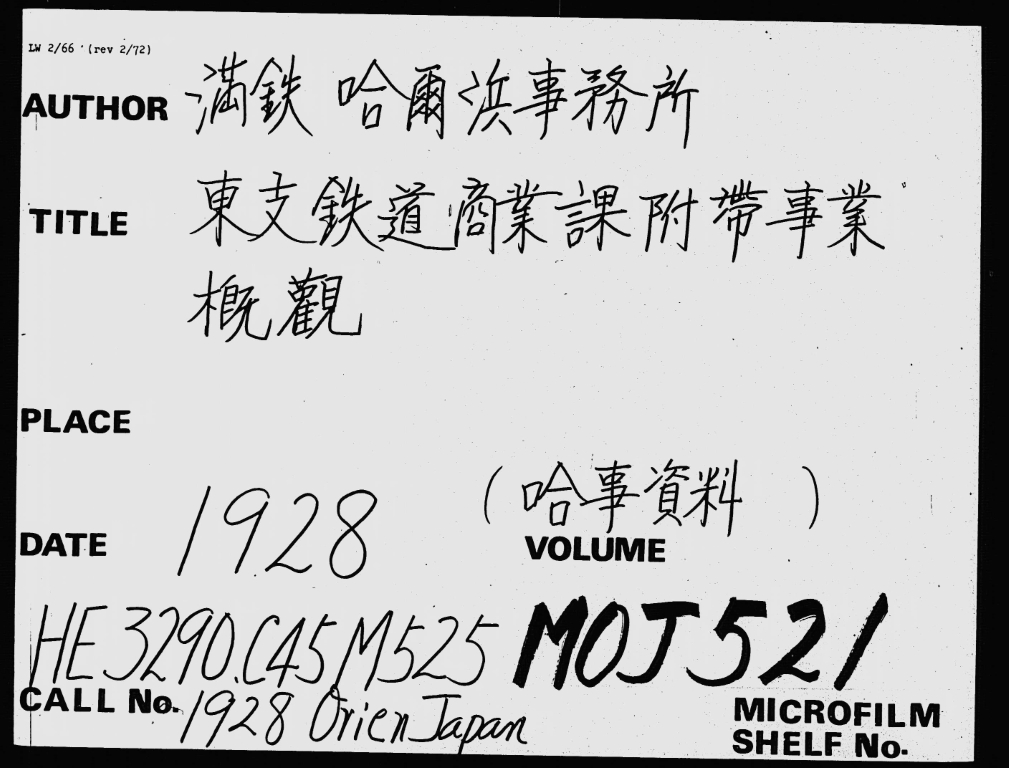 LW 2/66 (rev 2/72)
AUTHOR 満鉄 哈爾浜事務所
TITLE 東支鉄道商業課附帶事業
概觀
PLACE
(哈事資料 )
DATE 1928 VOLUME
HE 3290.C45 M525 MOJ 521
CALL No. 1928 Orien Japan MICROFILM
SHELF No.